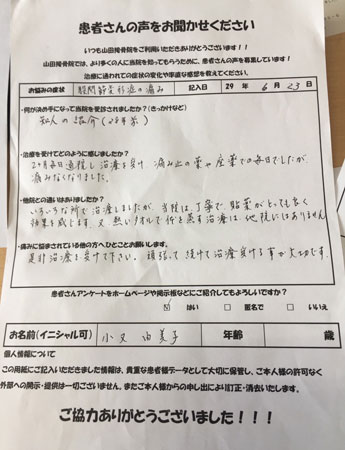 患者さんの声をお聞かせください
いつも山田接骨院をご利用いただきありがとうございます！！
山田接骨院では、より多くの人に当院を知ってもらうために、患者さんの声を募集しています！
治療に通われての症状の変化や率直な感想を教えてください。
お悩みの症状 股関節変形症の痛み 記入日 29年 6月 23日
・何が決め手になって当院を受診されましたか？（きっかけなど）
知人の紹介
・治療を受けてどのように感じましたか？
2ヶ月毎日通院し治療を受け、痛み止の薬や座薬での毎日でしたが
痛みなくなりました。
・他院との違いはありますか？
いろいろな所で治療しましたが、当院は、丁寧で、貼薬がとっても良く
効果を感じます。又、熱いタオルで体を蒸す治療は、他院にはありません
・痛みに悩まされている他の方へひとことお願いします。
是非治療を受けて下さい。頑張って続けて治療受ける事が大切です。
患者さんアンケートをホームページや掲示板などにご紹介してもよろしいですか？
はい 匿名で いいえ
お名前(イニシャル可) 小又 由美子 年齢 歳
個人情報について
この用紙にご記入いただきました情報は、貴重な患者様データとして大切に保管し、ご本人様の許可なく
外部への開示・提供は一切ございません。またご本人様からの申し出により訂正・消去いたします。
ご協力ありがとうございました！！！